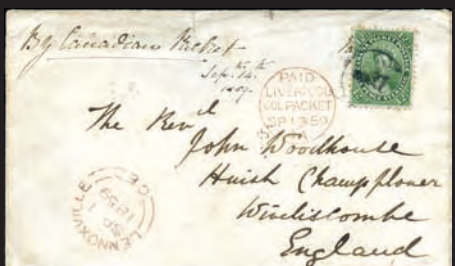 By Canadian Packet
Sept. 14th
1859.
PAID
LIVERPOOL
COL. PACKET
SP 13 59
A
The Revd
John Woodhouse
Huish Champflower
Wiveliscombe
England
LENNOXVILLE
SP 1
1859
C.E.